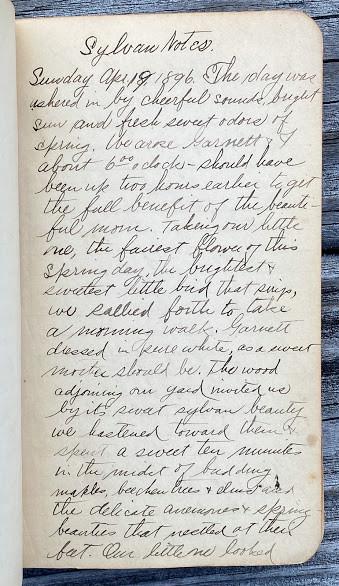 Sylvan Notes.
Sunday Apr. 19 1896. The day was
ushered in by cheerful sounds, bright
sun and fresh sweet odors of
spring. We arose Garnett & I
about 6⁰⁰ o'clock - should have
been up two hours earlier to get
the full benefit of the beauti-
ful morn. Taking our little
one, the fairest flower of this
Spring day, the brightest &
sweetest little bird that sings,
we sallied forth to take
a morning walk. Garnett
dressed in pure white, as a sweet
mother should be. The wood
adjoining our yard invited us
by its sweet sylvan beauty
we hastened toward them &
spent a sweet ten minutes
in the midst of budding
maples, beechen trees & elms and
the delicate anemones & spring
beauties that nestled at their
feet. Our little one looked